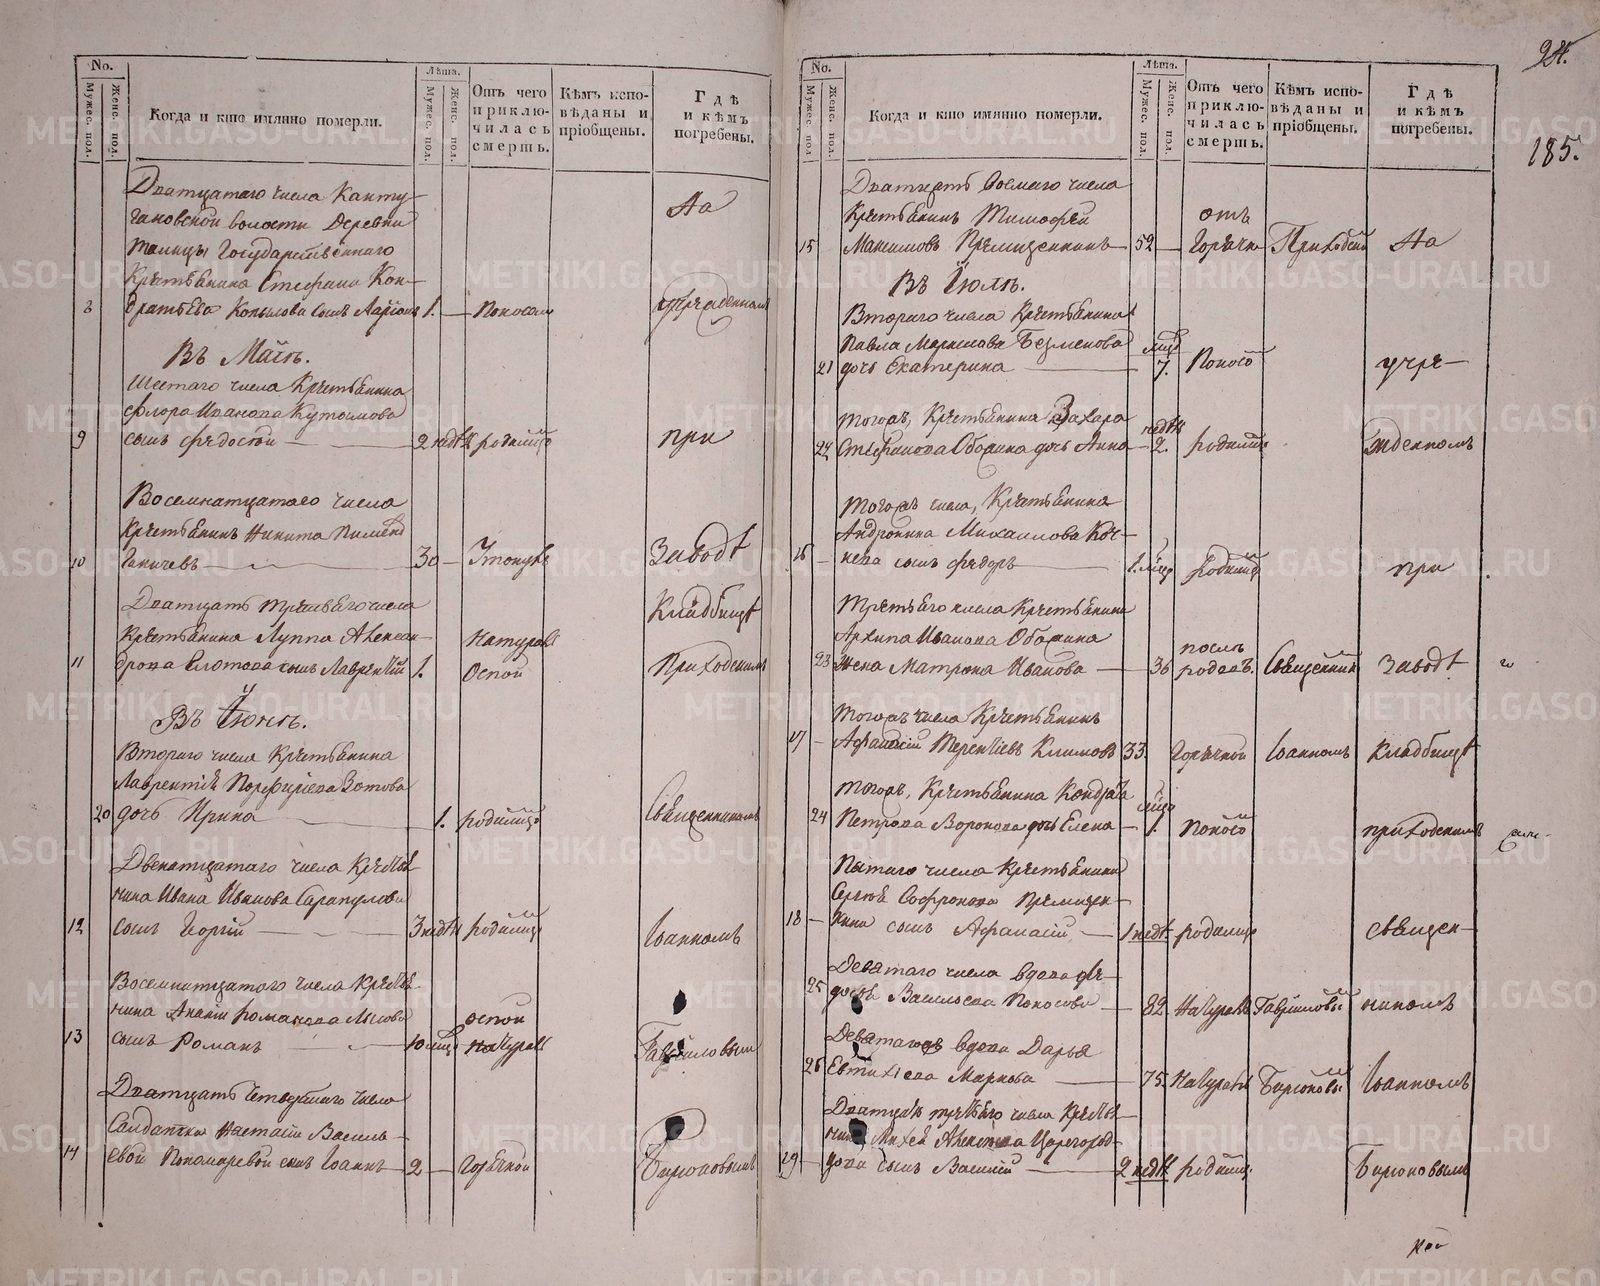 No.
Мужес. пол.
Женс. пол.
Когда и кто имянно померли.
Лѣта.
Мужес. пол.
Женс. пол.
Отъ чего приключилась смерть.
Кѣмъ исповѣданы и пріобщены.
Гдѣ и кѣмъ погребены.
Дватцатаго числа Канту-
гановской волости Деревни
Талицы Государственнаго
Крестьянина Стефана Кон-
8 дратьева Копылова сынъ Ларіонъ 1. — Поносом
На
учрежденномъ
Въ Маіѣ.
Шестаго числа Крестьянина
Флора Иванова Кутымова
9 сынъ Федосей — 2 недѣл родимце
при
Восемнатцатаго числа
Крестьянинъ Никита Пимено
10 30 — Утонулъ
Заводѣ
Дватцать третьяго числа
Крестьянина Луппа Алексан-
11 дрова сынъ Лаврентій 1.
Натурал
Оспой
Кладбищѣ
Приходскимъ
Въ Іюнѣ.
Втораго числа Крестьянина
Лаврентія Порфирьева Зотова
20 дочь Ирина — 1. родимцо
Священникомъ
Двенатцатаго числа Крестья
нина Ивана Иванова Сарапулова
12 сынъ Георгій — 3 недѣл родимце
Іоанномъ
Восемнатцатаго числа Крестья
нина Ананіи Романова Лысова
13 сынъ Романъ — 10 меце
оспой
Натурал
Гавриловымъ
Дватцать четвертаго числа
Салдатки Настасіи Василь-
14 евой Пономаревой сынъ Іоаннъ — 2 — Горячкой
Бирюковымъ
24.
185.
No.
Мужес. пол.
Женс. пол.
Когда и кто имянно померли.
Лѣта.
Мужес. пол.
Женс. пол.
Отъ чего приключилась смерть.
Кѣмъ исповѣданы и пріобщены.
Гдѣ и кѣмъ погребены.
Дватцать восмаго числа
Крестьянинъ Тимофей
15 Максимовъ — 52 —
отъ
Горячки Приходски На
Въ Іюлѣ.
Втораго числа Крестьянина
Павла Маркелова Безменова
21 дочь Екатерина — 7. меце Поносо учре-
тогожъ, Крестьянина Захара
22 Стефанова Оборина дочь Анна — 2. недѣл родимце жденномъ
тогожъ числа, Крестьянина
Андроника Михайлова Коч-
16 нева сынъ Федоръ — 1. меце родимце при
третьяго числа Крестьянина
Архипа Иванова Оборина
23 Жена Матрона Иванова — 36
послѣ
родовъ. Священник Заводѣ
тогожъ числа Крестьянинъ
17 — Афанасій Терентіевъ Климовъ 33. Горячкой Іоанномъ Кладбищѣ
тогожъ, Крестьянина Кондрата
24 Петрова Воронова дочь Елена — 1. меце Поносо приходскимъ
Пятаго числа Крестьянина
Сергея Софронова
18 — сынъ Афанасій — 1 недѣл. родимце священ-
Девятаго числа вдова Фе-
25 досья Васильева Поносова — 82. Натурал Гаврилові никомъ
Девятагожъ вдова Дарья
26 Евтихіева Маркова — 75. Натурал Бирюковы Іоанномъ
Дватцать третьяго числа Крестья
нина Михея Алексеева Царегород-
19 — цова сынъ Василій — 2 недѣл родимце Бирюковымъ